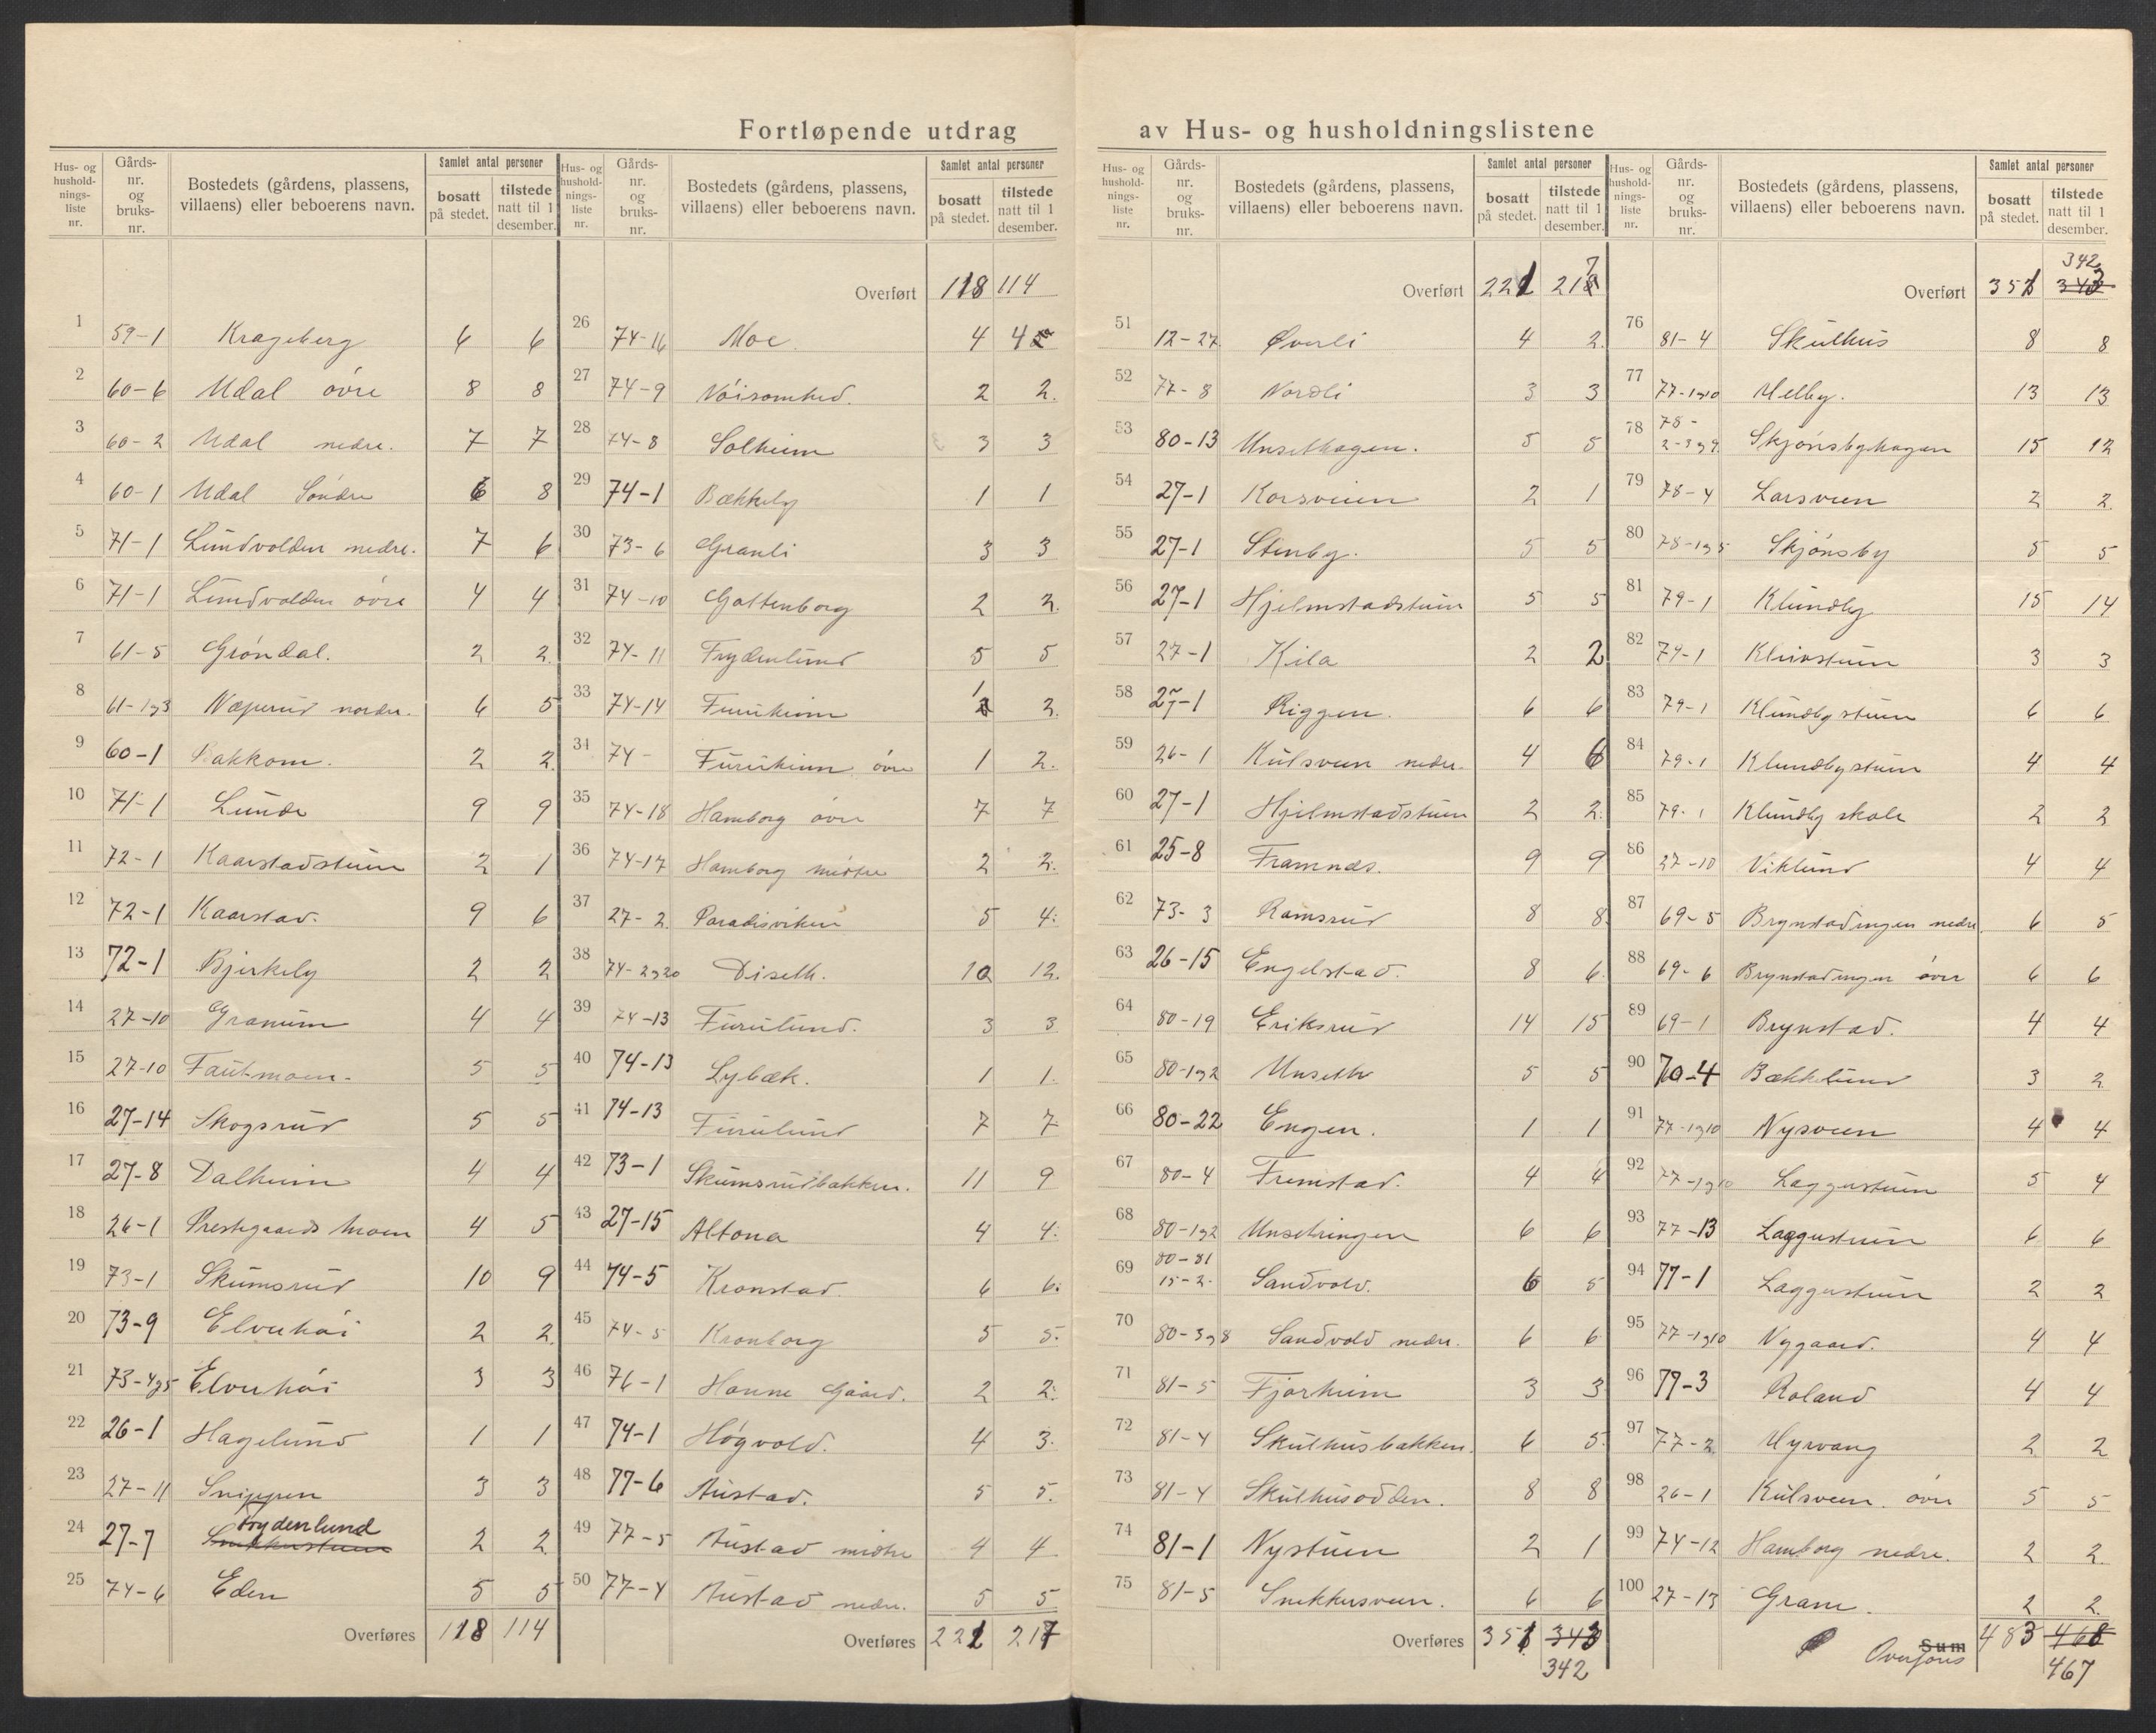 Fortløpende utdrag av Hus- og husholdningslistene
Hus- og husholdnings- liste nr. | Gårds- nr. og bruks- nr. | Bostedets (gårdens, plassens, villaens) eller beboerens navn. | Samlet antal personer bosatt på stedet. | tilstede natt til 1 desember.
1 59-1 Krageberg 6 6
2 60-6 Udal övre 8 8
3 60-2 Udal nedre. 7 7
4 60-1 Udal Söndre 6 8
5 71-1 Lundvolden nedre. 7 6
6 71-1 Lundvolden övre 4 4
7 61-5 Gröndal. 2 2
8 61-1og3 Næperud nordre. 6 5
9 60-1 Bakkom. 2 2
10 71-1 Lunde 9 9
11 72-1 Kaarstadstuen 2 1
12 72-1 Kaarstad. 9 6
13 72-1 Bjerkely 2 2
14 27-10 Granum 4 4
15 27-10 Fautmoen. 5 5
16 27-14 Skogsrud 5 5
17 27-8 Dalheim 4 4
18 26-1 Prestegaards moen 4 5
19 73-1 Skumsrud 10 9
20 73-9 Elvehöi 2 2
21 73-4og5 Elvehöi 3 3
22 26-1 Hagelund 1 1
23 27-11 Snippen 3 3
24 27-7 Frydenlund 2 2
25 74-6 Eden 5 5
Overføres 118 114
Hus- og husholdnings- liste nr. | Gårds- nr. og bruks- nr. | Bostedets (gårdens, plassens, villaens) eller beboerens navn. | Samlet antal personer bosatt på stedet. | tilstede natt til 1 desember.
Overført 118 114
26 74-16 Moe. 4 4
27 74-9 Nöisomhed. 2 2.
28 74-8 Solheim 3 3
29 74-1 Bækkely 1 1
30 73-6 Granli 3 3
31 74-10 Gottenborg 2 2.
32 74-11 Frydenlund 5 5
33 74-14 Furuheim 1 2.
34 74- Furuheim övre 1 2.
35 74-18 Hamborg övre 7 7
36 74-17 Hamborg midtre 2 2.
37 27-2 Paradisviken 5 4.
38 74-2og20 Diseth. 10 12.
39 74-13 Furulund. 3 3
40 74-13 Lybæk. 1 1.
41 74-13 Furulund 7 7
42 73-1 Skumsrudbakken. 11 9
43 27-15 Altona 4 4.
44 74-5 Kronstad. 6 6.
45 74-5 Kronborg 5 5.
46 76-1 Hanne Gaard. 2 2.
47 74-1 Høgvold. 4 3.
48 77-6 Austad. 5 5.
49 77-5 Austad midtre 4 4
50 77-4 Austad nedre. 5 5
Overføres 221 217
Hus- og husholdnings- liste nr. | Gårds- nr. og bruks- nr. | Bostedets (gårdens, plassens, villaens) eller beboerens navn. | Samlet antal personer bosatt på stedet. | tilstede natt til 1 desember.
Overført 221 217
51 12-27 Øverli 4 2.
52 77-8 Nordli 3 3
53 80-13 Unsethagen. 5 5
54 27-1 Korsveien 2 1
55 27-1 Stenby. 5 5
56 27-1 Hjelmstadstuen 5 5
57 27-1 Kila 2 2
58 27-1 Riggen. 6 6
59 26-1 Kulsveen nedre. 4 6
60 27-1 Hjelmstadstuen 2 2.
61 25-8 Framnæs. 9 9
62 73-3 Ramsrud 8 8
63 26-15 Engelstad. 8 6
64 80-19 Eriksrud 14 15
65 80-1og2 Unseth 5 5
66 80-22 Engen. 1 1
67 80-4 Fremstad. 4 4
68 80-1og2 Unsetringen 6 6
69 80-81 15-2. Sandvold. 6 5
70 80-3og8 Sandvold nedre. 6 6
71 81-5 Fjorheim 3 3
72 81-4 Skulhusbakken. 6 5
73 81-4 Skulhusodden. 8 8
74 81-1 Nystuen 2 1
75 81-5 Snekkersveen. 6 6
Overføres 351 343
342
Hus- og husholdnings- liste nr. | Gårds- nr. og bruks- nr. | Bostedets (gårdens, plassens, villaens) eller beboerens navn. | Samlet antal personer bosatt på stedet. | tilstede natt til 1 desember.
342
Overført 351 343
76 81-4 Skulhus 8 8
77 77-1og10 Melby. 13 13
78 78- 2-3og9 Skjönsbyhagen 15 12
79 78-4 Larsveen 2 2
80 78-1og5 Skjönsby 5 5
81 79-1 Klundby 15 14
82 79-1 Kleivstuen 3 3
83 79-1 Klundbystuen 6 6
84 79-1 Klundbystuen 4 4
85 79-1 Klundby skole 2 2
86 27-10 Viklund 4 4
87 69-5 Brynstadengen nedre. 6 5
88 69-6 Brynstadengen övre 6 6
89 69-1 Brynstad. 4 4
90 70-4 Bækkelund 3 2
91 77-1og10 Nysveen 4 4
92 77-1og10 Laggerstuen 5 4
93 77-13 Laggerstuen 6 6
94 77-1 Laggerstuen 2 2
95 77-1og10 Nygaard. 4 4
96 77-3 Roland 4 4
97 77-2 Myrvang 2 2
98 26-1 Kulsveen övre 5 5
99 74-12 Hamborg nedre. 2 2.
100 27-13 Grane. 2 2.
Sum Overföres 483 468
467